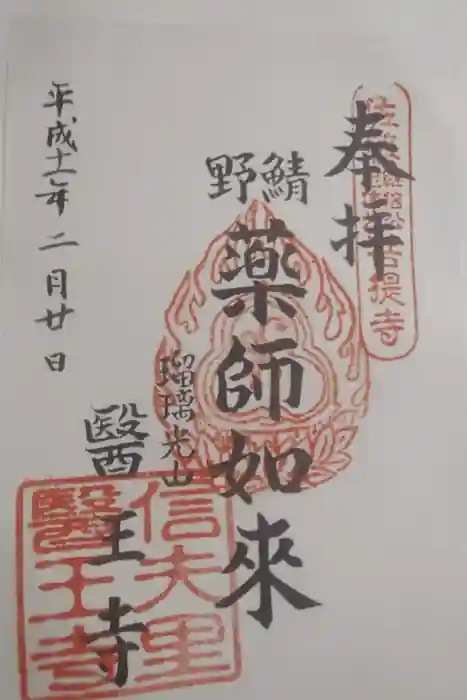 奉拝
鯖野
薬師如來
瑠璃光山
醫王寺
平成十一年二月廿日
信夫里
醫王寺
菩提寺